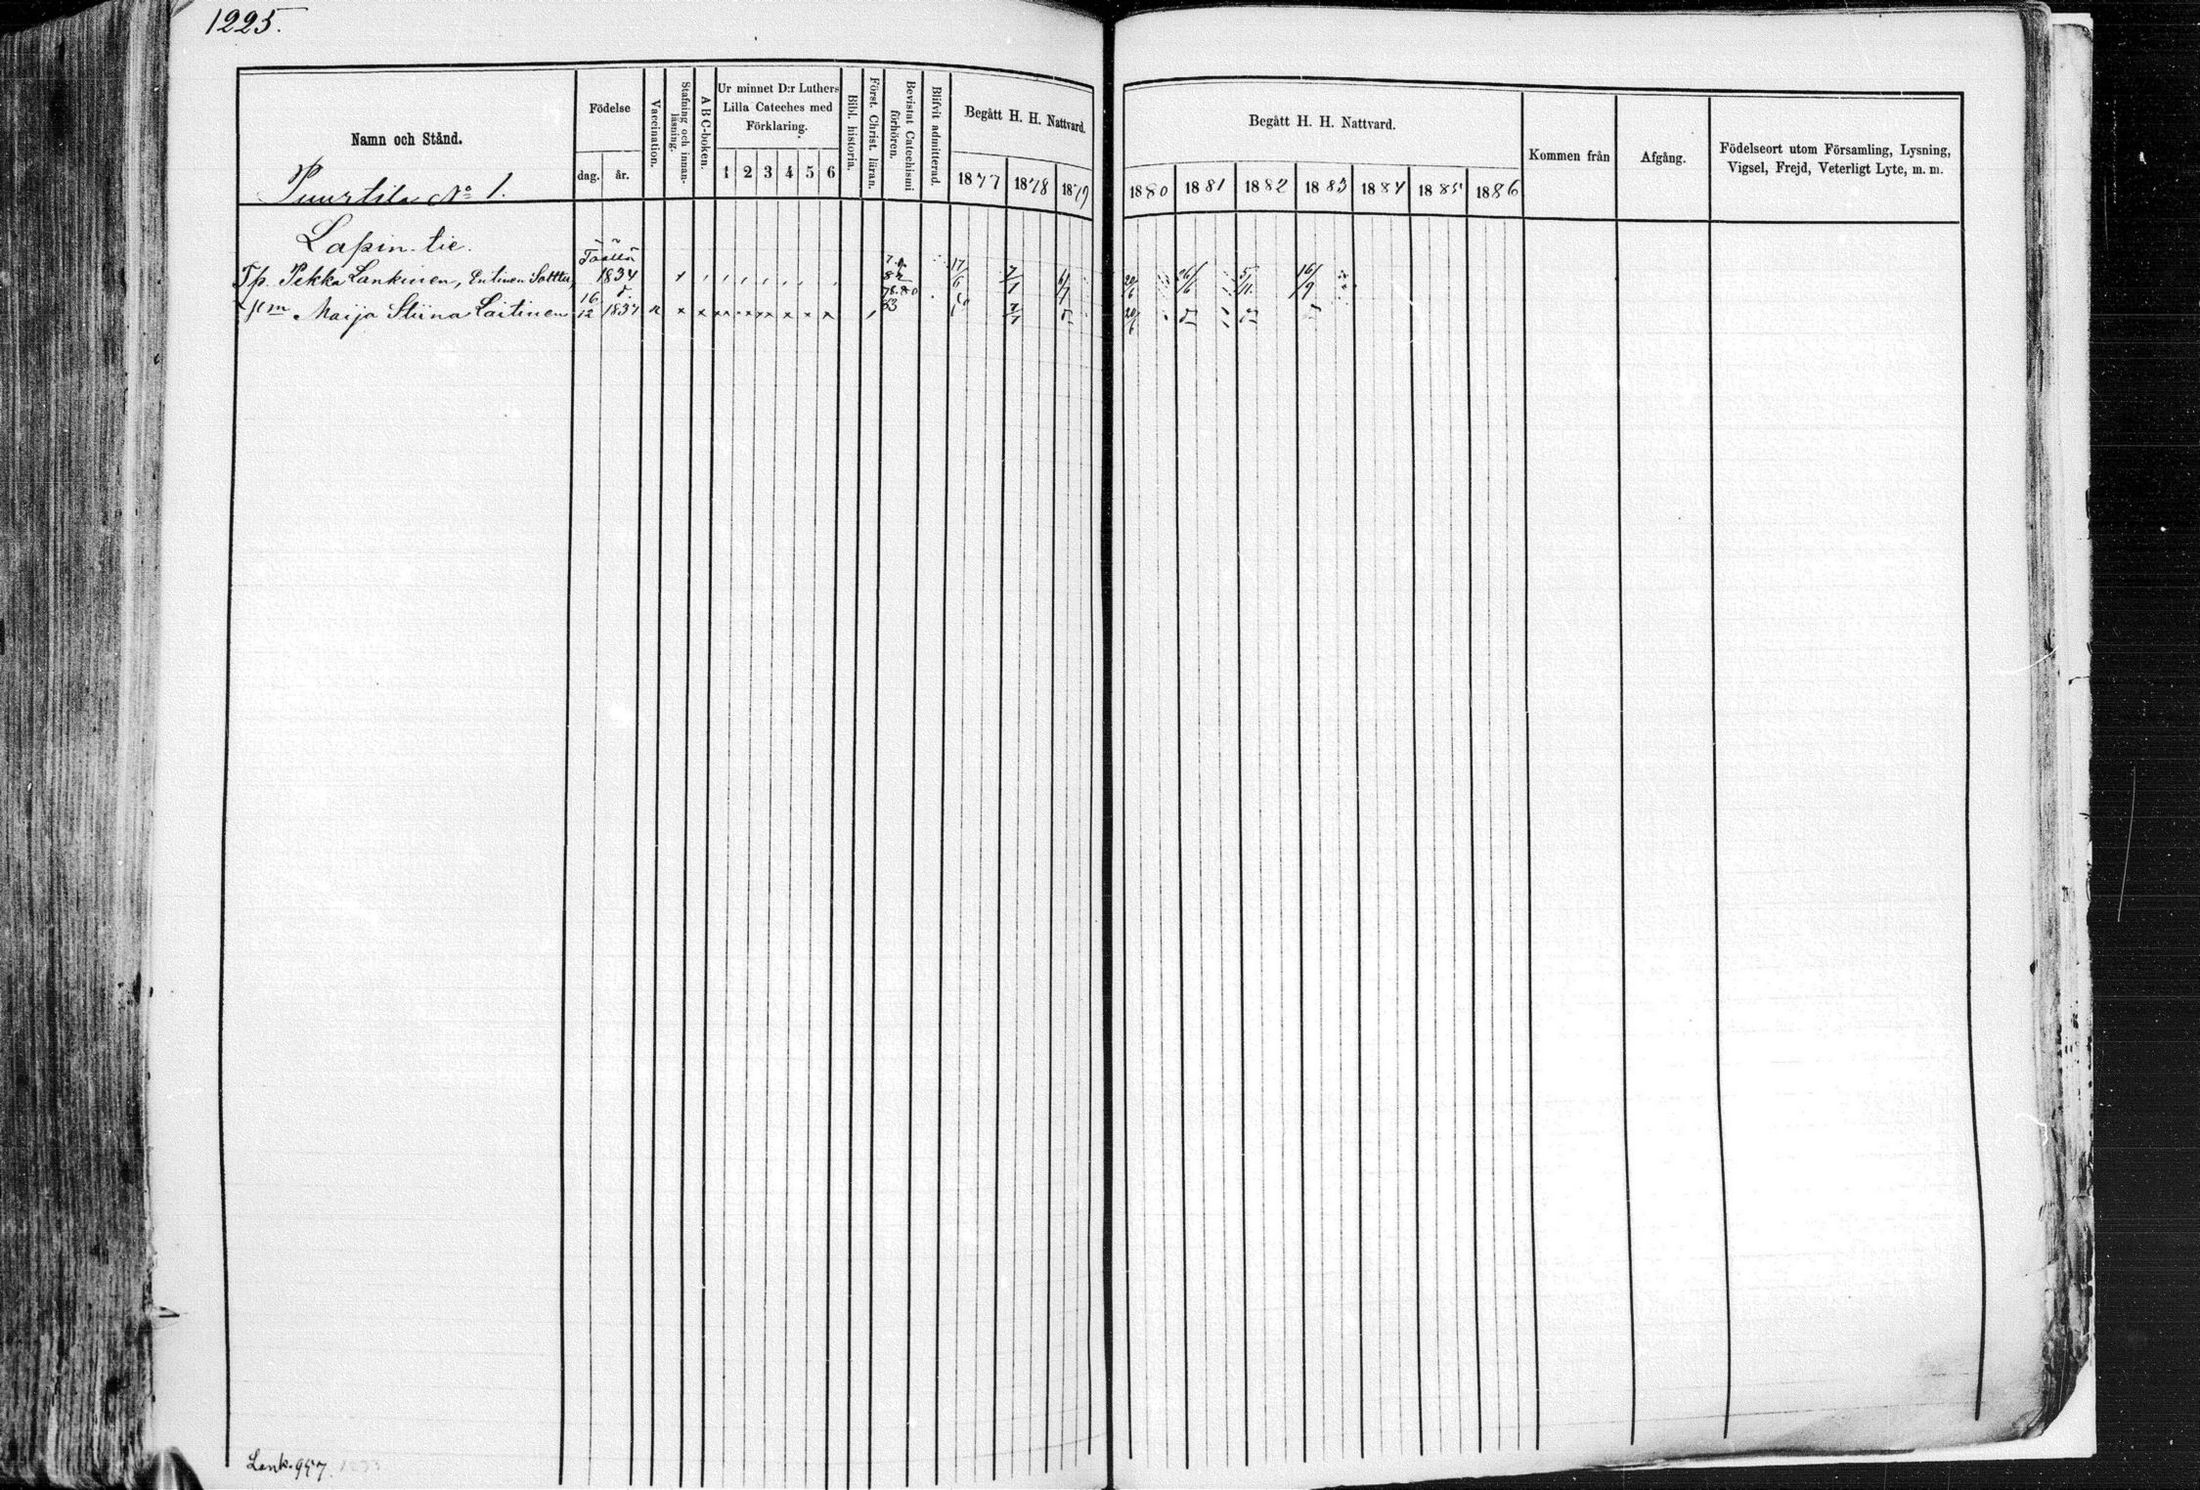 1225.
Namn och Stånd.
Födelse
dag. år.
Vaccination.
Stafning och innan-
läsning.
A B C-boken.
Ur minnet D:r Luthers
Lilla Cateches med
Förklaring.
1 2 3 4 5 6
Bibl. historia.
Först. Christ. läran.
Bevistat Catechismi
förhören.
Blifvit admitterad.
Begått H. H. Nattvard.
1877 1878 1879
Begått H. H. Nattvard.
1880 1881 1882 1883 1884 1885 1886
Kommen från
Afgång.
Födelseort utom Församling, Lysning,
Vigsel, Frejd, Veterligt Lyte, m. m.
Puurtila No 1.
Lapin-tie.
Pekka Lankinen, Entinen 1834 17/6 7/1 6/1 20/6 26/6 5/11 16/9
Maija Stiina Laitinen 16/12 1834 7/1 20/6
Lank. 957.